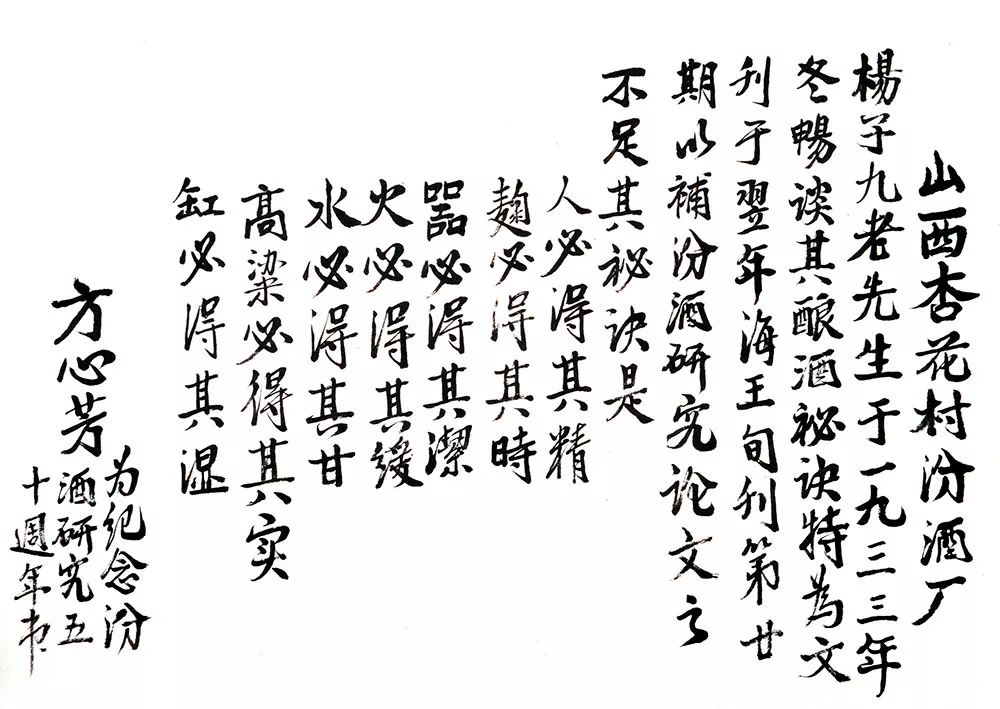 山西杏花村汾酒厂
楊子九老先生于一九三三年
冬暢谈其酿酒祕诀特為文
刊于翌年海王旬刊第廿
期以補汾酒研究论文之
不足其祕诀是
人必得其精
麹必得其時
器必得其潔
火必得其缓
水必得其甘
高粱必得其实
缸必得其湿
方心芳
为纪念汾
酒研究五
十週年书